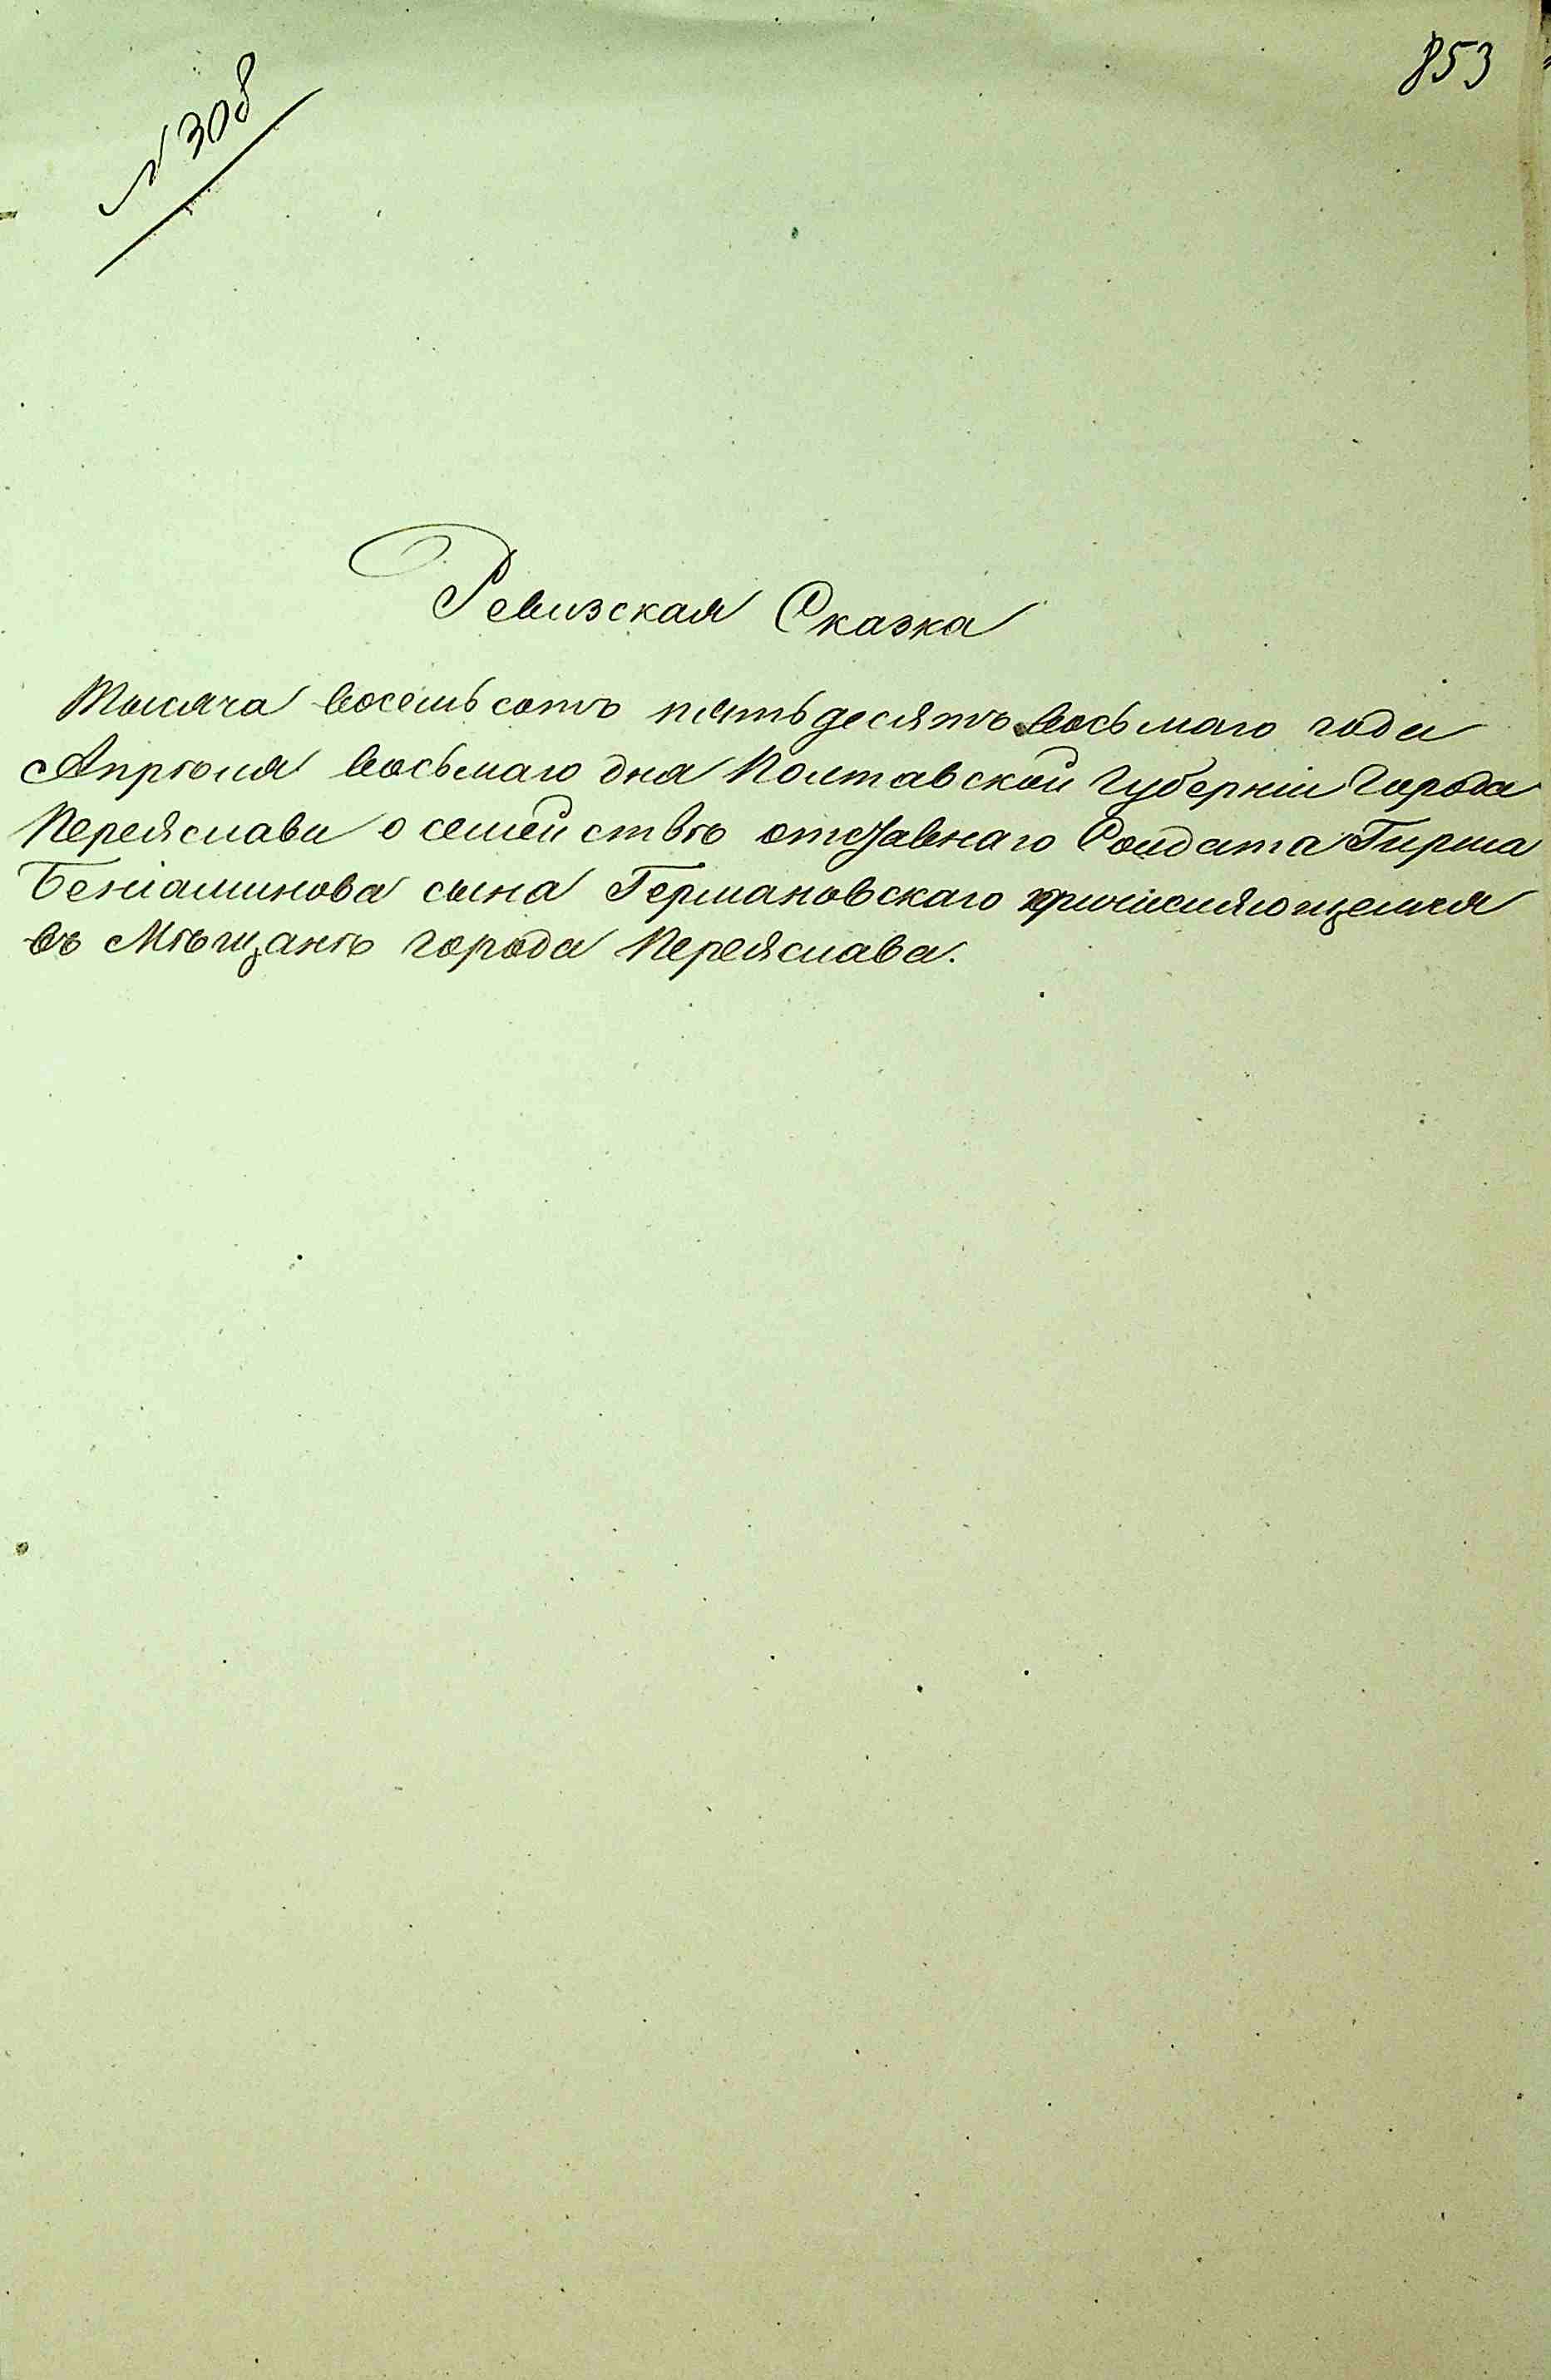 853
№ 308
Ревизская Сказка
Тысяча восемьсотъ пятьдесятъ восьмаго года
Апрѣля восьмаго дня Полтавской Губерніи Города
Переяслава о семействѣ отставнаго Солдата Гирша
Беніаминова сына Германовскаго причисляющемся
въ Мѣщанѣ города Переяслава.